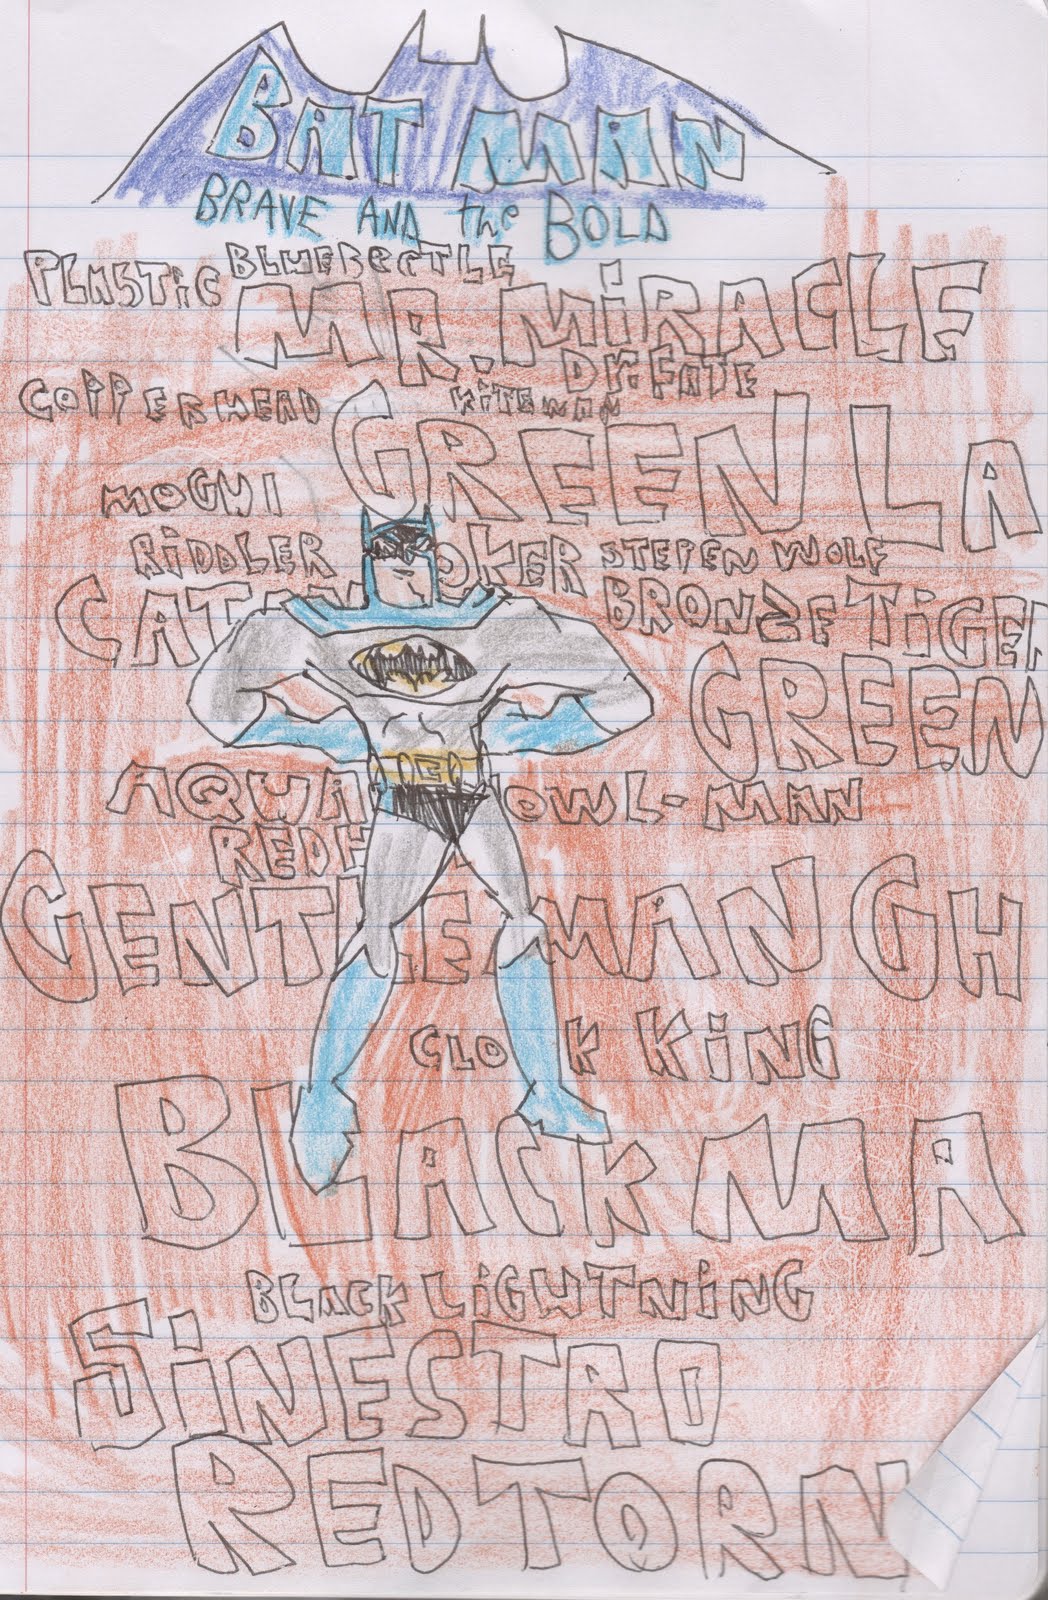 BATMAN
BRAVE AND the BOLD
PLASTIC BLUEBEETLE
MR. MIRACLE
DR. FATE
COPPERHEAD KITEMAN
GREEN LA
MOGUI
RIDDLER OKER STEPEN WOLF
CAT BRONZE TIGER
GREEN
AQUA OWL-MAN
REDH
GENTLEMAN GH
CLOK KING
BLACK MA
BLACK LIGHTNING
SINESTRO
RED TORN